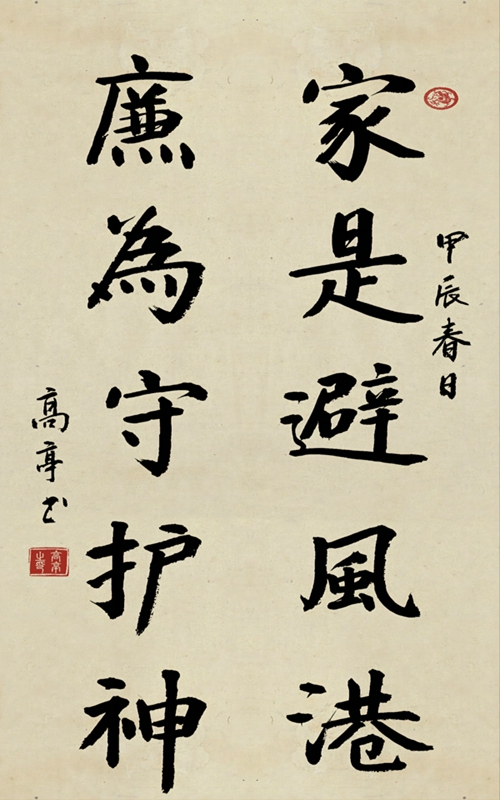 甲辰春日
家是避風港
廉為守护神
高亭书